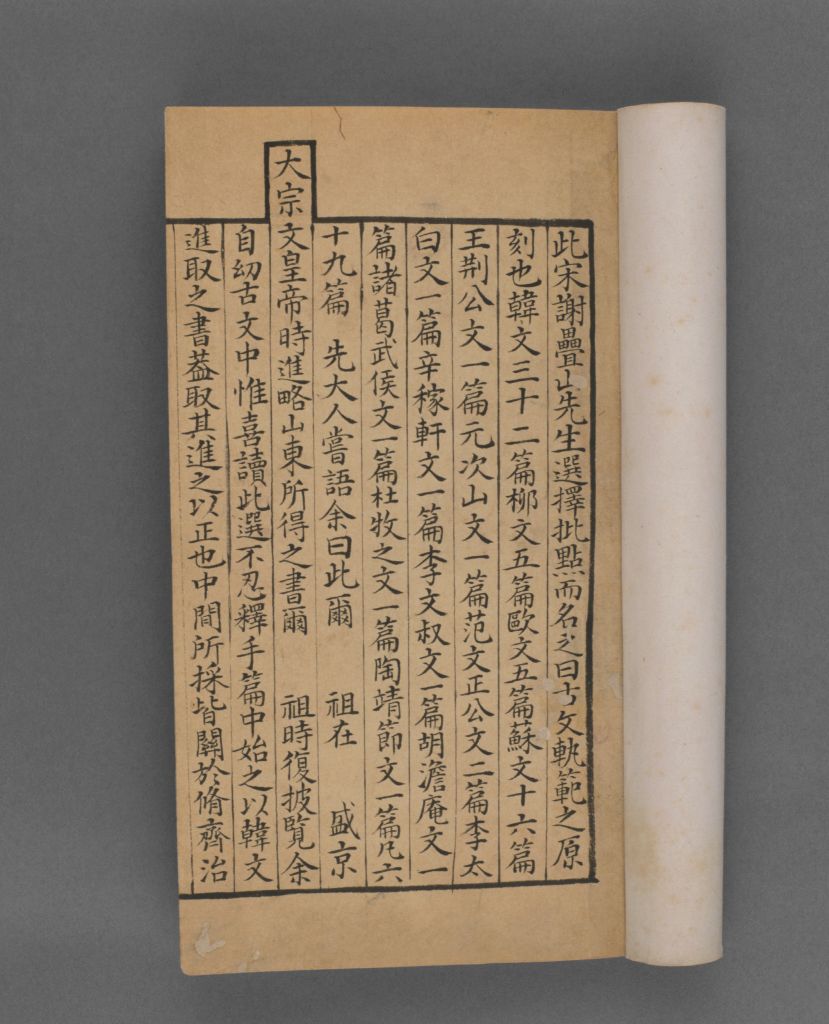 此宋謝疊山先生選擇批點而名之曰古文軌範之原
刻也韓文三十二篇柳文五篇歐文五篇蘇文十六篇
王荆公文一篇元次山文一篇范文正公文二篇李太
白文一篇辛稼軒文一篇李文叔文一篇胡澹庵文一
篇諸葛武侯文一篇杜牧之文一篇陶靖節文一篇凡六
十九篇　先大人嘗語余曰此爾　祖在　盛京
大宗文皇帝時進略山東所得之書爾　祖時復披覽余
自幼古文中惟喜讀此選不忍釋手篇中始之以韓文
進取之書葢取其進之以正也中間所採皆關於脩齊治